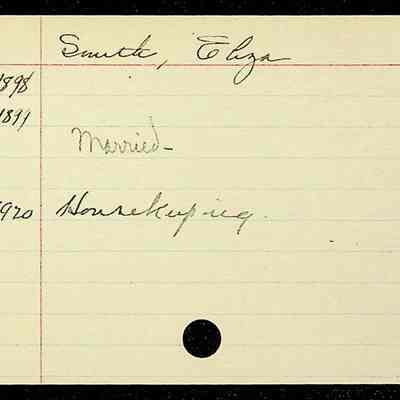 Smith, Eliza
1898
1899
Married-
1920 Housekeeping.